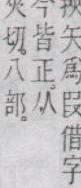 挾矢爲叚借字
今皆正。从
夾切。八部。